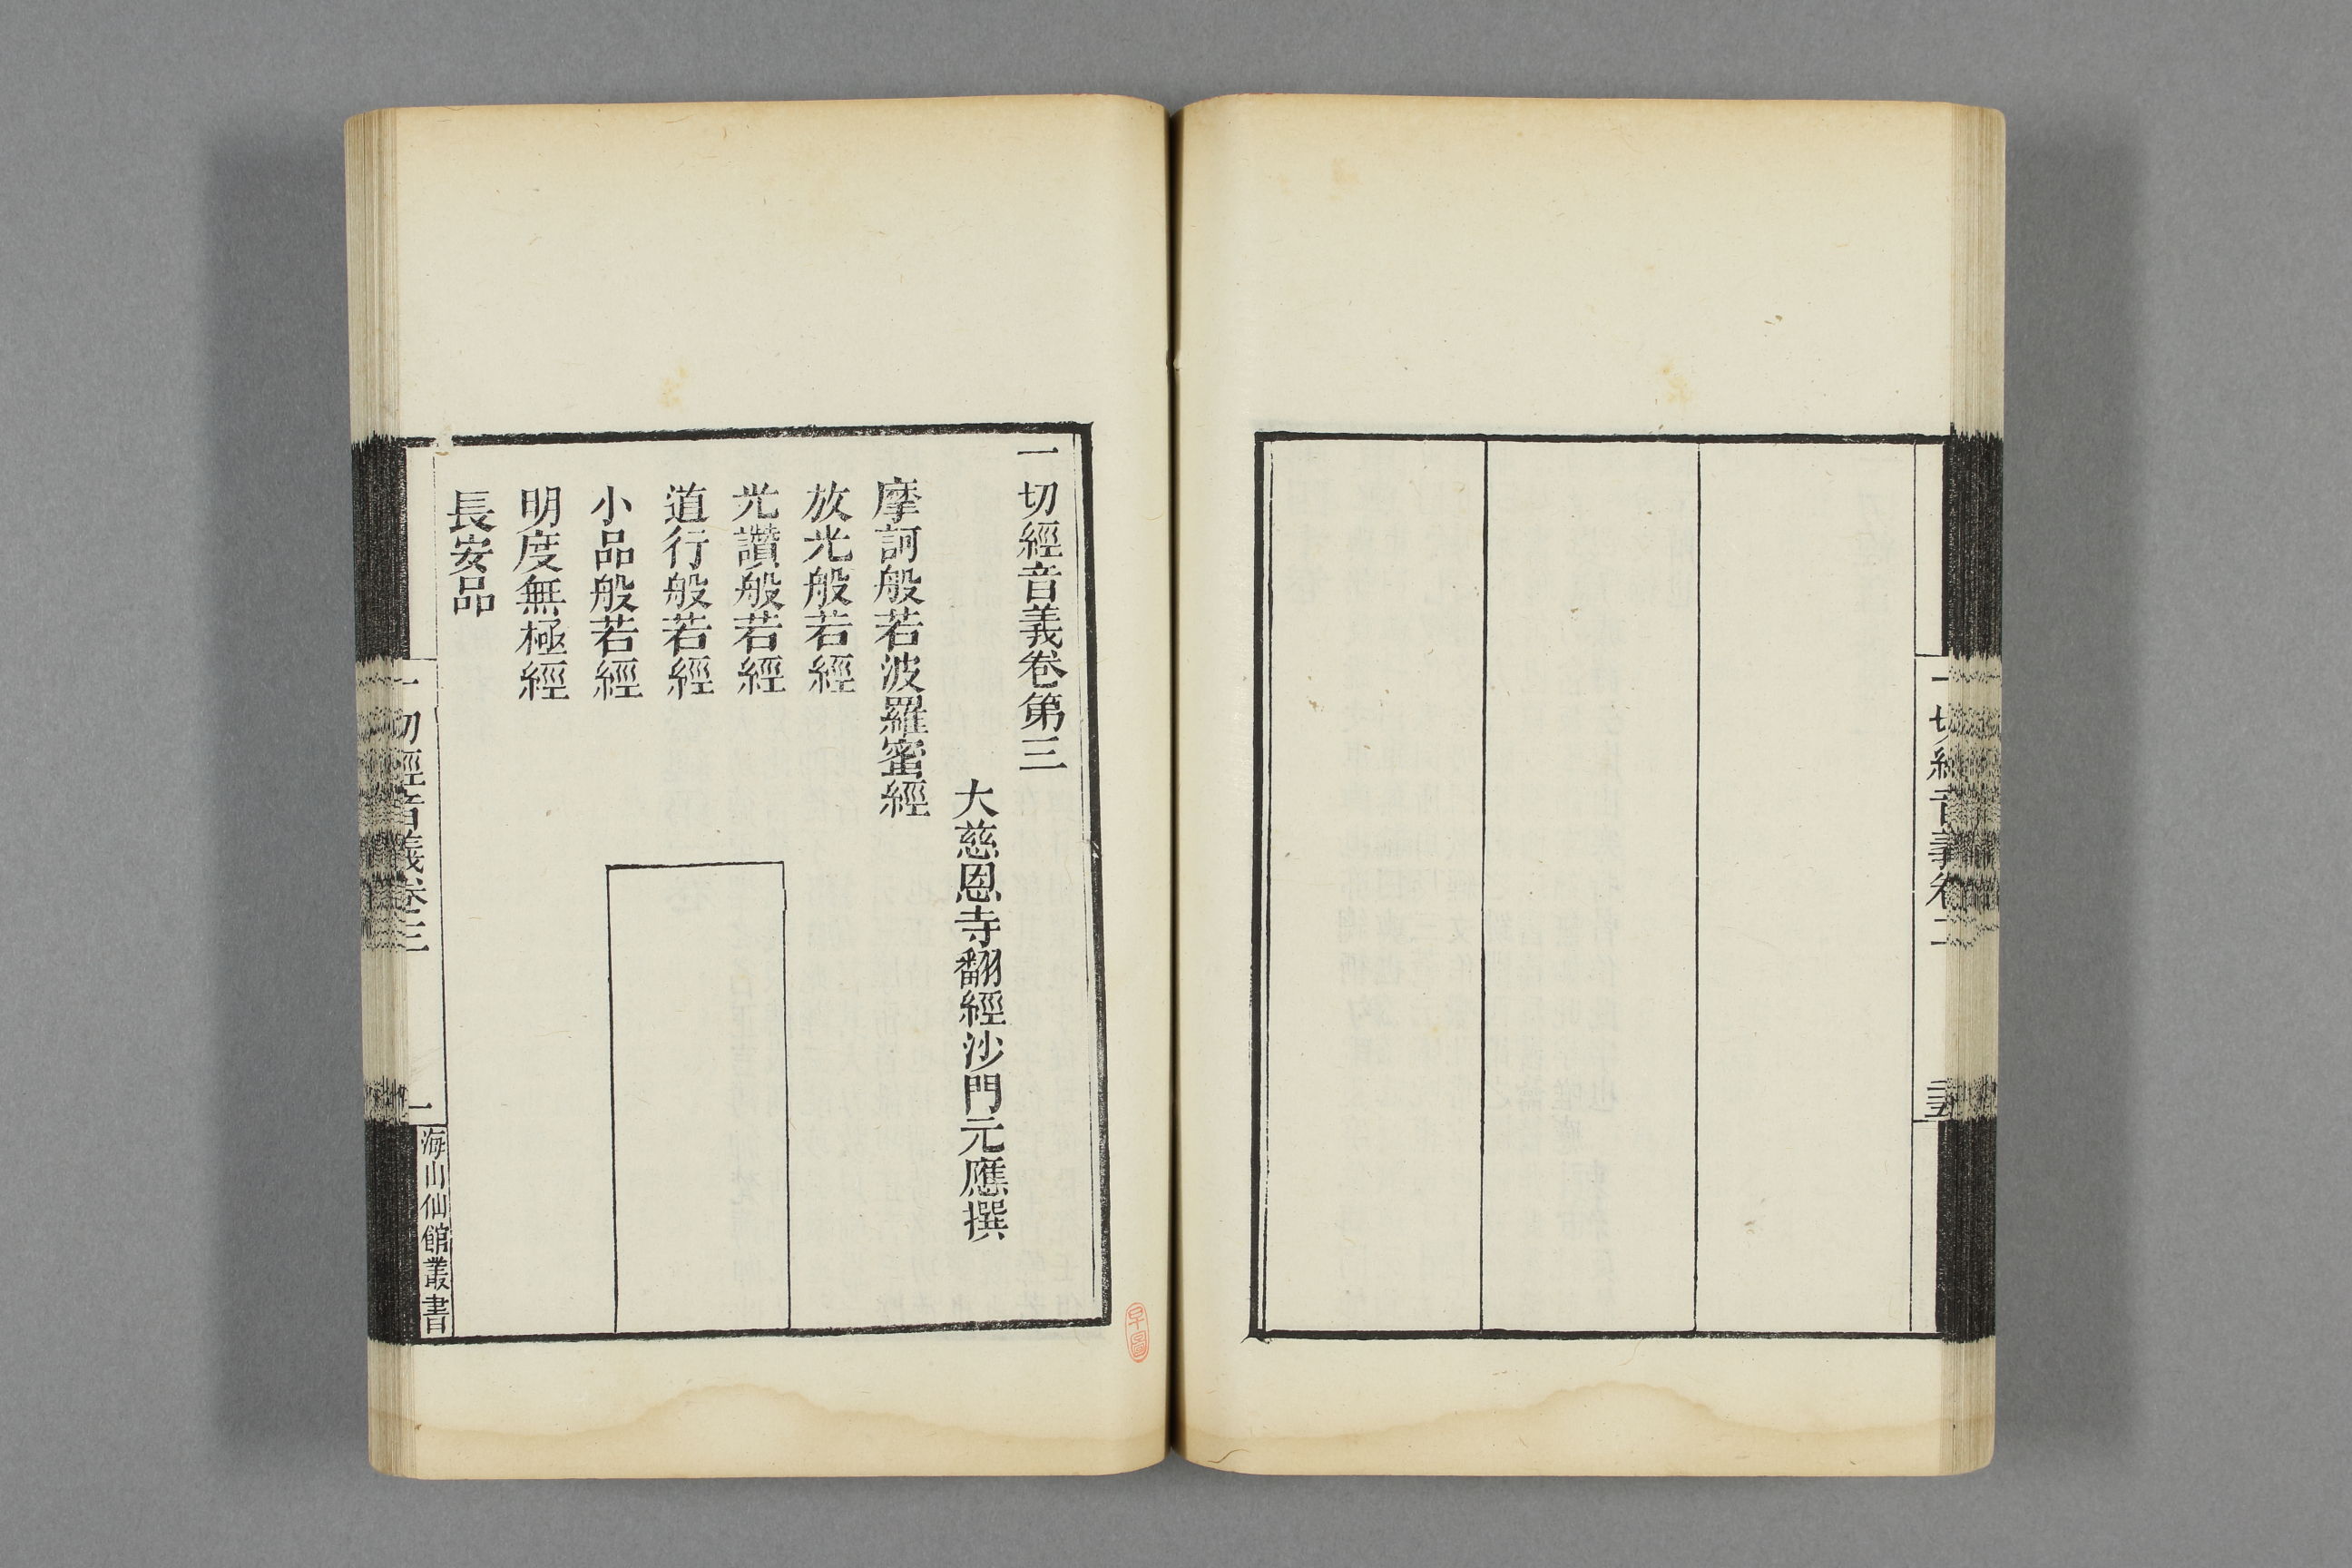 一切經音義卷二
一切經音義卷第三
大慈恩寺翻經沙門元應撰
摩訶般若波羅蜜經
放光般若經
光讚般若經
道行般若經
小品般若經
明度無極經
長安品
一切經音義卷三
一
海山仙館叢書